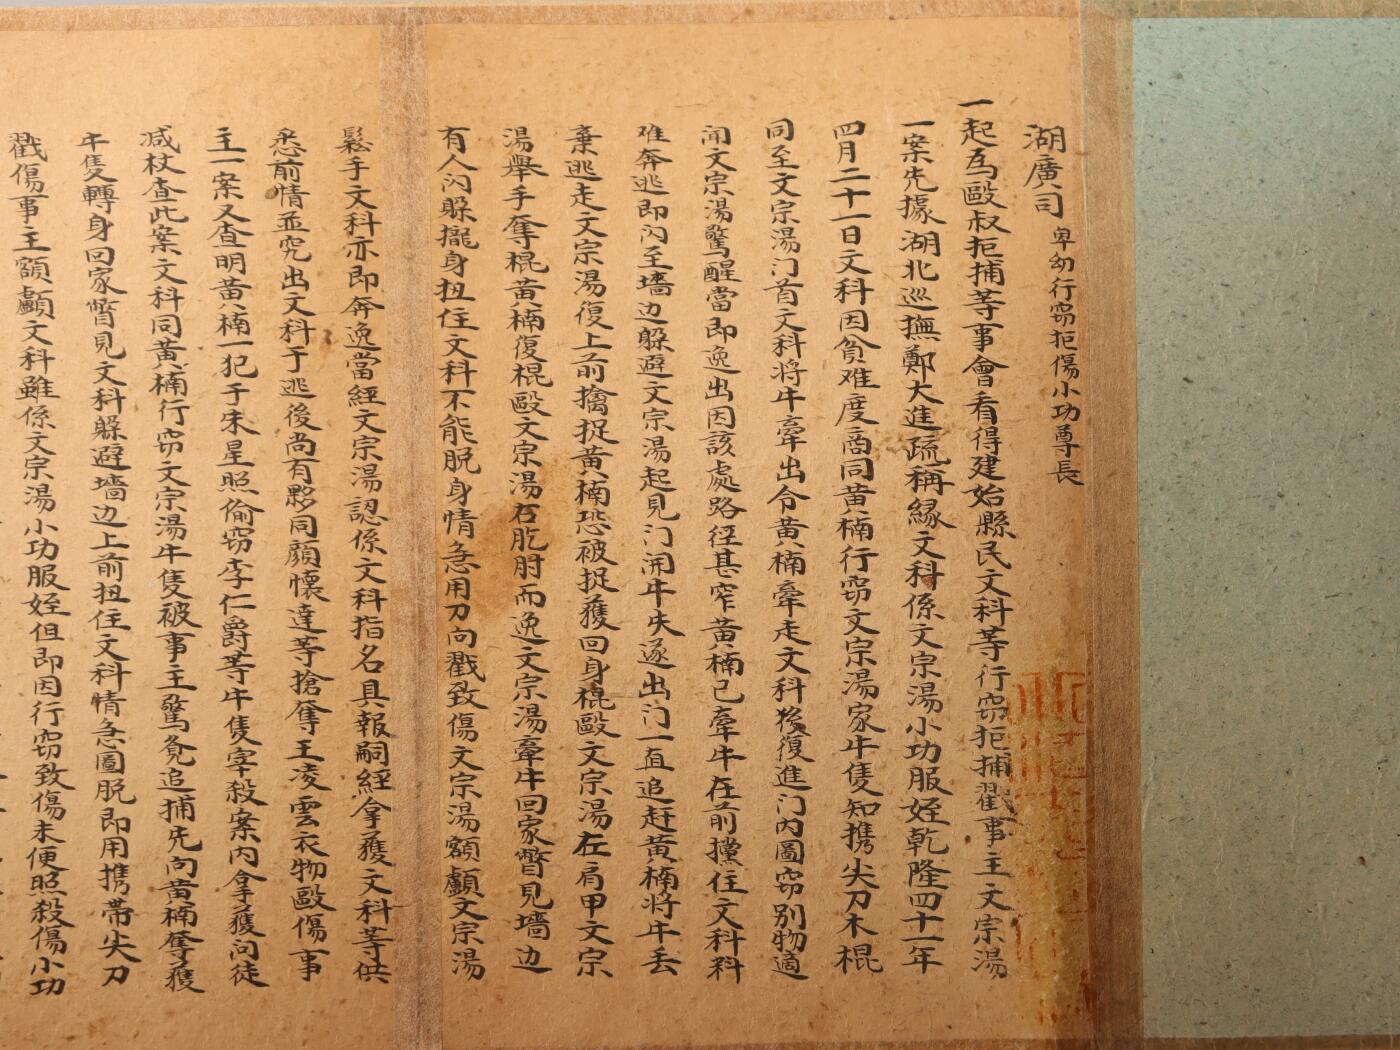 湖廣司 卑幼行窃拒傷小功尊長
一起為毆叔拒捕等事會看得建始縣民文科等行窃拒捕戳事主文宗湯
一案先據湖北巡撫鄭大進疏稱緣文科係文宗湯小功服姪乾隆四十一年
四月二十一日文科因貧难度商同黄楠行窃文宗湯家牛隻知携尖刀木棍
同至文宗湯门首文科将牛牽出令黄楠牽走文科後復進门内圖窃别物適
闻文宗湯驚醒當即逸出因該處路徑甚窄黄楠已牽牛在前攩住文科科
难奔逃即闪至墻边躱避文宗湯起見门開牛失遂出门一直追赶黄楠将牛丢
棄逃走文宗湯復上前擒捉黄楠恐被捉獲回身棍毆文宗湯左肩甲文宗
湯舉手奪棍黄楠復棍毆文宗湯右肐肘而逸文宗湯牽牛回家瞥見墻边
有人闪躱攏身扭住文科不能脱身情急用刀向戳致傷文宗湯額顱文宗湯
鬆手文科亦即奔逸當經文宗湯認係文科指名具報嗣經拿獲文科等供
悉前情並究出文科于逃後尚有夥同顔懷達等搶奪王凌雲衣物毆傷事
主一案又查明黄楠一犯于朱星照偷窃李仁爵等牛隻宰殺案内拿獲问徒
减杖查此案文科同黄楠行窃文宗湯牛隻被事主驚覺追捕先向黄楠奪獲
牛隻轉身回家瞥見文科躱避墻边上前扭住文科情急圖脱即用携帶尖刀
戳傷事主額顱文科雖係文宗湯小功服姪但即因行窃致傷未便照殺傷小功